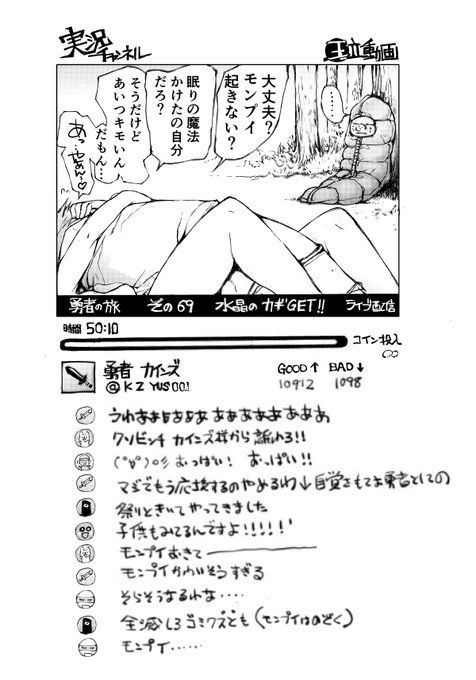 実況チャンネル
王立動画
大丈夫?
モンプイ
起きない?
眠りの魔法
かけたの自分
だろ?
そうだけど
あいつキモいん
だもん…
あっ
やめ〜ん♡
……
勇者の旅 その69 水晶のカギGET!! ライブ配信
時間 50:10
コイン投入
勇者 カインズ
@KZYUS001
GOOD↑ BAD↓
10912 1098
うわああああああ ああああああああ
クソビッチ カインズ様から離れろ!!
(°∀°)o彡 おっぱい! おっぱい!!
マジでもう応援するのやめるわ↓自覚をもてよ勇者としての
祭りときいてやってきました
子供もみてるんですよ!!!!!
モンプイおきてーーーー
モンプイかわいそうすぎる
そらそうなるわな‥‥
全滅しろゴミクズども(モンプイはのぞく)
モンプイ……